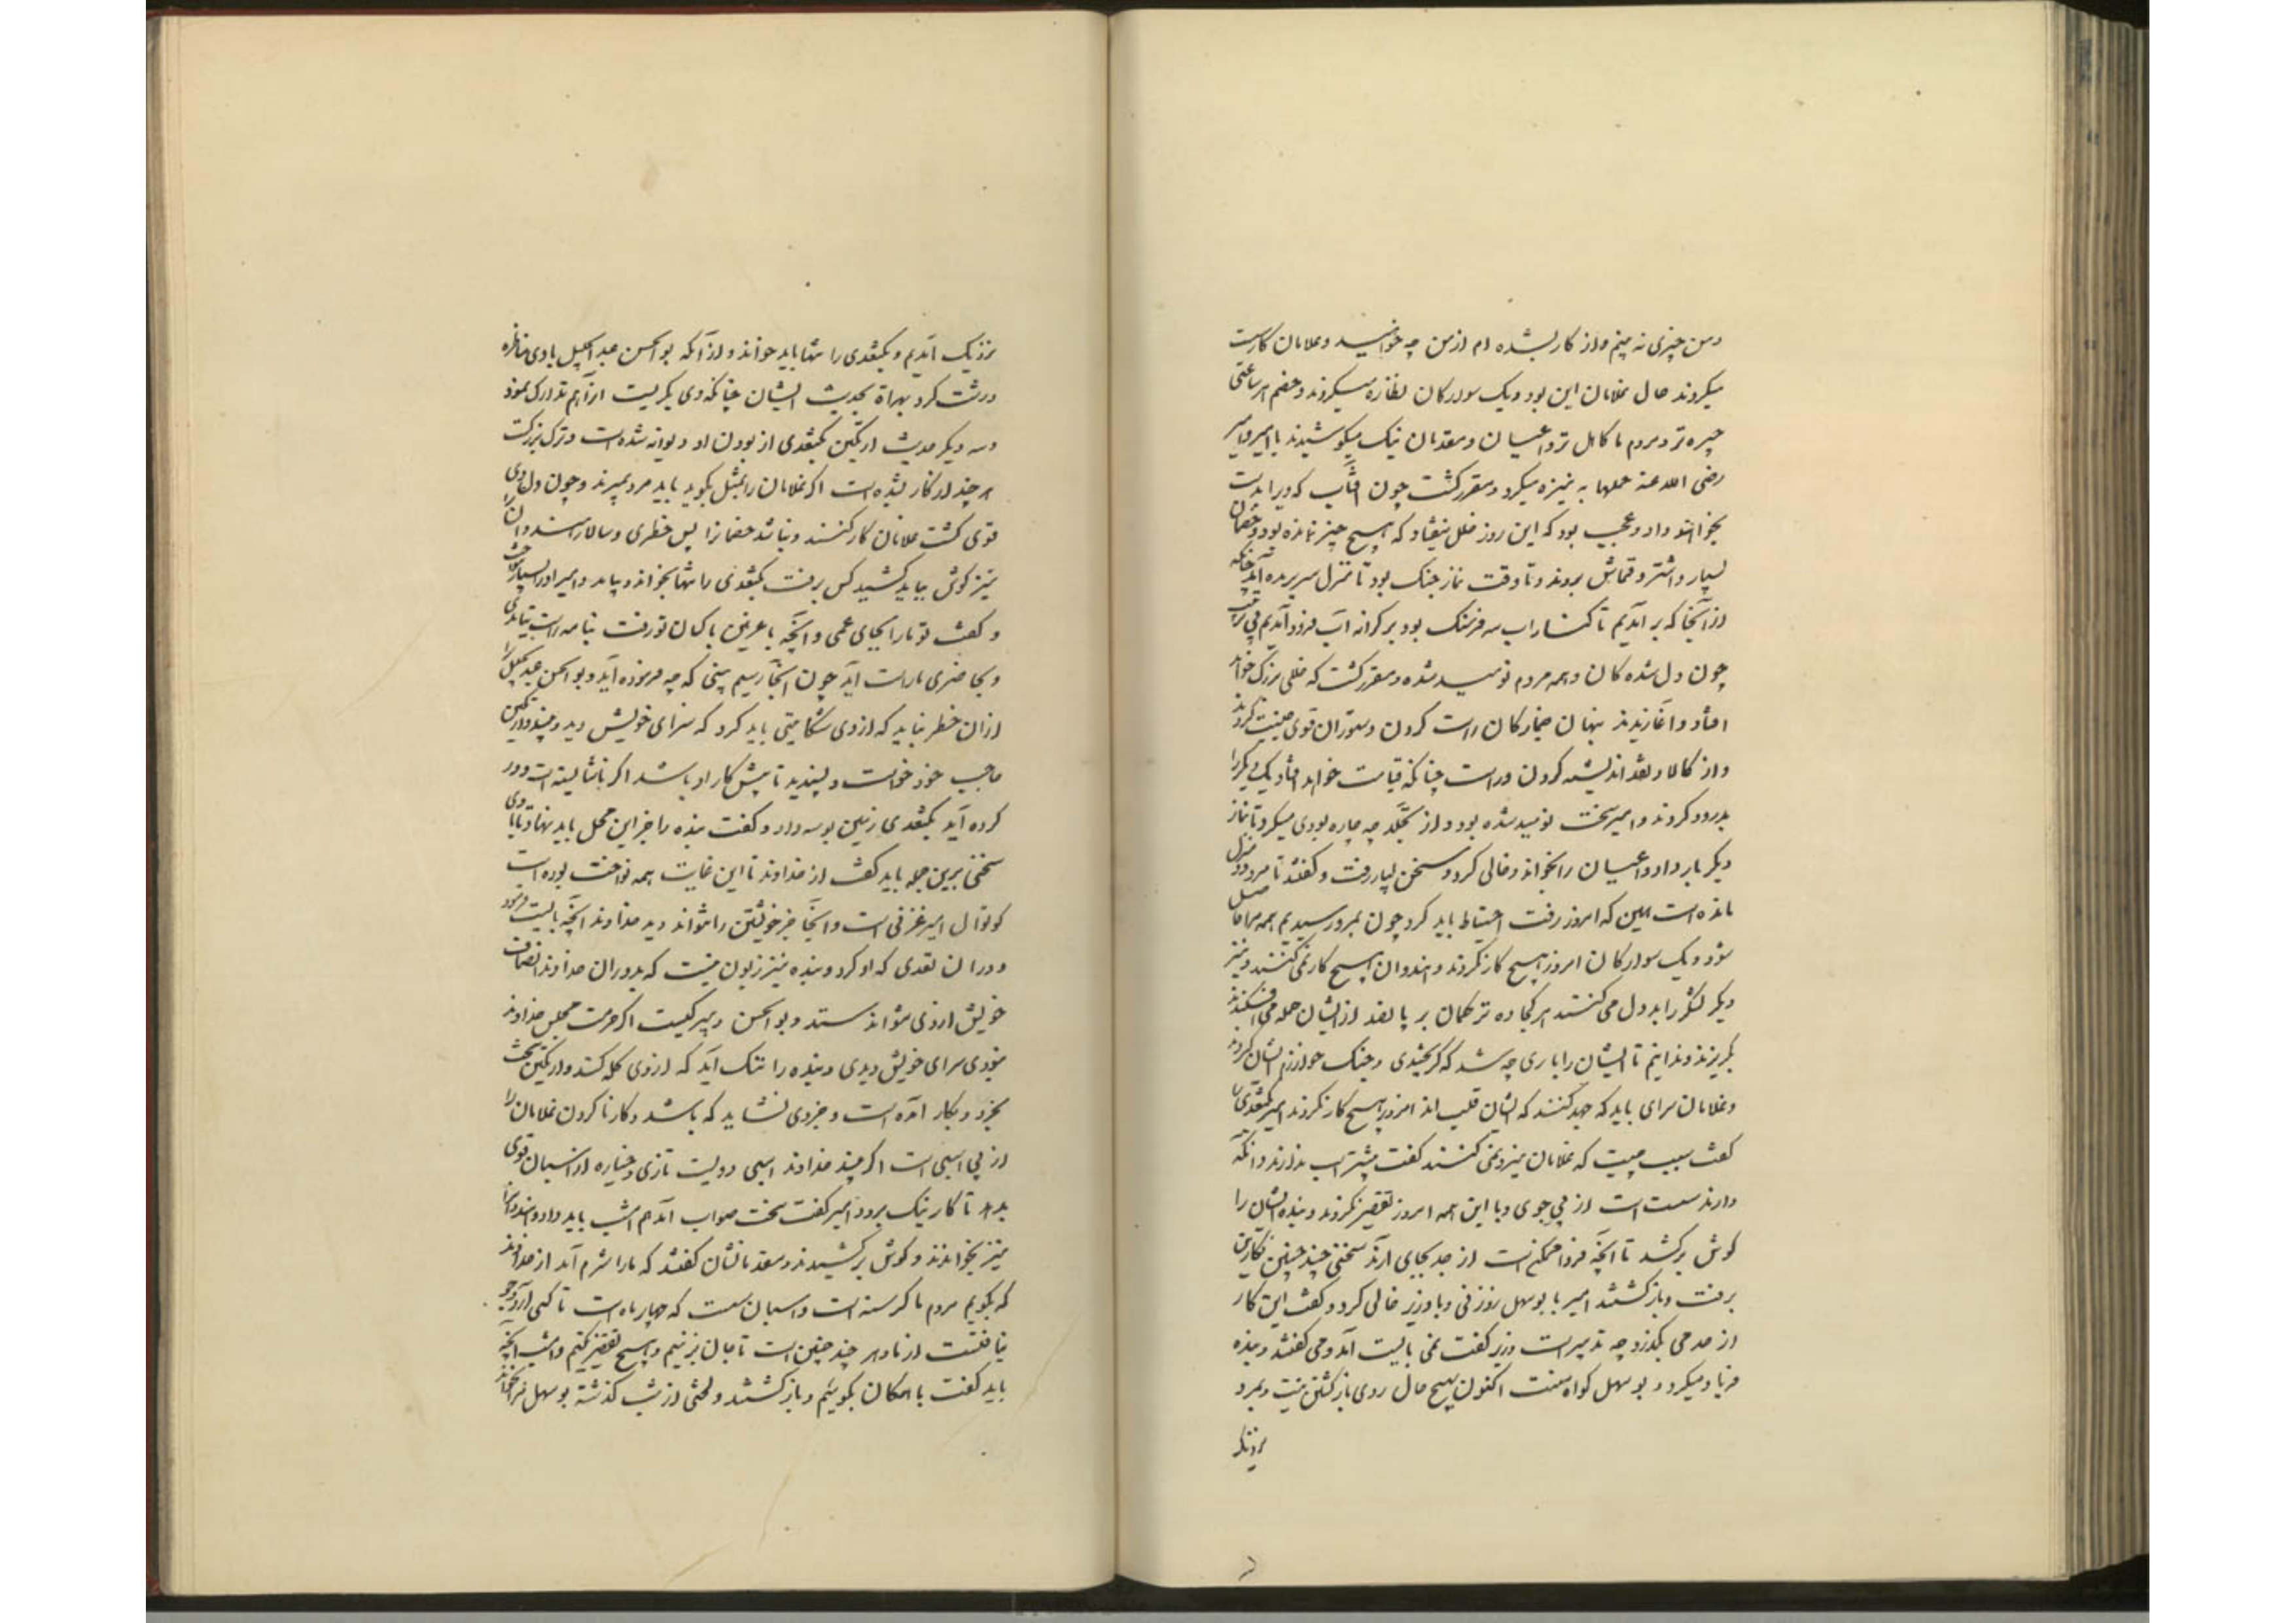 و من چیزی نه بینم و از کار بشده ام از من چه خواهید و غلامان کار سست
میکردند حال غلامان این بود و یک سوارکان نظاره میکردند و خصم هر ساعتی
چیره تر و مردم ما کاهل تر و اعیان و مقدمان نیک میکوشیدند با امیر و امیر
رضی الله عنه حملها به نیزه میکرد و مقرر کشت چون آفتاب که ویرا بدست
بخواهند داد و عجب بود که این روز خلل نیفتاد که هیچ چیز نمانده بود و خصمان
بسیار و اشتر و قماش بردند و تا وقت نماز جنک بود تا منزل بریده آمد چنانکه
از آنجا که بر آمدیم تا کنار آب سه فرسنک بود بر کرانه آب فرود آمدیم بی ترتیب
چون دل شده کان و همه مردم نومید شده و مقرر کشت که خللی بزرک خواهد
افتاد و آغازیدند پنهان جمازکان راست کردن و ستوران قوی جنیبت کردند
و از کالا و نقد اندیشه کردن و راست چنانکه قیامت خواهد افتاد یک دیکر را
بدرود کردند و امیر سخت نومید شده بود و از تجلد چه چاره بودی میکرد تا نماز
دیکر بار داد و اعیان را بخواند و خالی کرد و سخن بسیار رفت و کفتند تا مرو دو منزل
مانده است همین که امروز رفت احتیاط باید کرد چون بمرو رسیدیم همه مرادها حاصل
شود و یک سوارکان امروز هیچ کار نکردند و هندوان هیچ کار نمی کنند و نیز
دیکر لشکر را بد دل می کنند هر کجا ده ترکمان بر پانصد از ایشان حمله می افکنند
بکریزند و ندانیم تا ایشان را باری چه شد که کریختندی و جنک خوارزم ایشان کردند
و غلامان سرای باید که جهد کنند که ایشان قلب اند امروز هیچ کار نکردند امیر بکتغدی را
کفت سبب چیست که غلامان نیرو نمی کنند کفت بیشتر اسب ندارند و آنکه
دارند سست است از بی جوی و با این همه امروز تقصیر نکردند و بنده ایشان را
کوش برکشد تا آنچه فردا ممکن است از جد بجای آرند سخنی چند چنین نکارین
برفت و باز کشتند امیر با بوسهل زوزنی و با وزیر خالی کرد و کفت این کار
از حد می بکذرد چه تدبیر است وزیر کفت نمی بایست آمد و می کفتند و بنده
فریاد میکرد و بوسهل کواه منست اکنون بهیچ حال روی باز کشتن نیست و بمرو
نزدیک آمدیم و بکتغدی را تنها باید خواند و از آنکه بوالحسن عبدالجلیل با وی مناظره
درشت کرد بهراة بحدیث ایشان چنانکه وی بکریست آنرا هم تدارک نمود
و سه دیکر حدیث ارتکین بکتغدی از بودن او دیوانه شده است و ترک بزرکست
هر چند از کار بشده است اکر غلامان را بمثل بکوید باید مرد بمیرند و چون دل وی
قوی کشت غلامان کار کنند و نباشد خصمانرا بس خطری و سالار هندوان را
نیز کوش بباید کشید کس برفت بکتغدی را تنها بخواند و بیامد و امیر او را بسیار بنواخت
و کفت تو ما را بجای عمی و آنچه با غزنین با کسان تو رفت بنامه راست نیامدی
و بحاضری ما راست آید چون آنجا رسیم بینی که چه فرموده آید و بوالحسن عبدالجلیل را
از آن خطر نباید که از وی شکایتی باید کرد که سزای خویش دید و بیند و ارتکین
حاجب خود خواست و پسندید تا پیش کار او باشد اکر ناشایسته است دور
کرده آید بکتغدی زمین بوسه داد و کفت بنده را جز این محل باید نهاد و تا با وی
سخنی برین جمله باید کفت از خداوند تا این غایت همه نواخت بوده است
کوتوال امیر غزنی است و آنجا جز خویشتن را نتواند دید خداوند آنچه بایست فرمود
و در آن تعدی که او کرد و بنده نیز زبون نیست که بدوران خداوند انتصاف
خویش از وی نتواند ستد و بوالحسن دبیر کیست اکر حرمت مجلس خداوند
نبودی سزای خویش دیدی و بنده را ننک آید که از وی کله کند و ارتکین سخت
بخرد و بکار آمده است و جز وی نشاید که باشد و کار نا کردن غلامان را
از بی اسپی است اکر بیند خداوند اسپی دویست تازی و ختیاره از اسپان قوی
بدهد تا کار نیک برود امیر کفت سخت صواب آمد هم امشب باید داد و هندوانرا
نیز بخواندند و کوش برکشیدند و مقدمانشان کفتند که ما را شرم آید از خداوند
که بکویم مردم ما کرسنه است و اسپان سست که چهار ماه است تا کسی آرد و جو
نیافتست از ما و هر چند چنین است تا جان بزنیم و هیچ تقصیر نکنیم و امشب آنچه
باید کفت با همکان بکوئیم و باز کشتند و لختی از شب کذشته بوسهل مرا بخواند